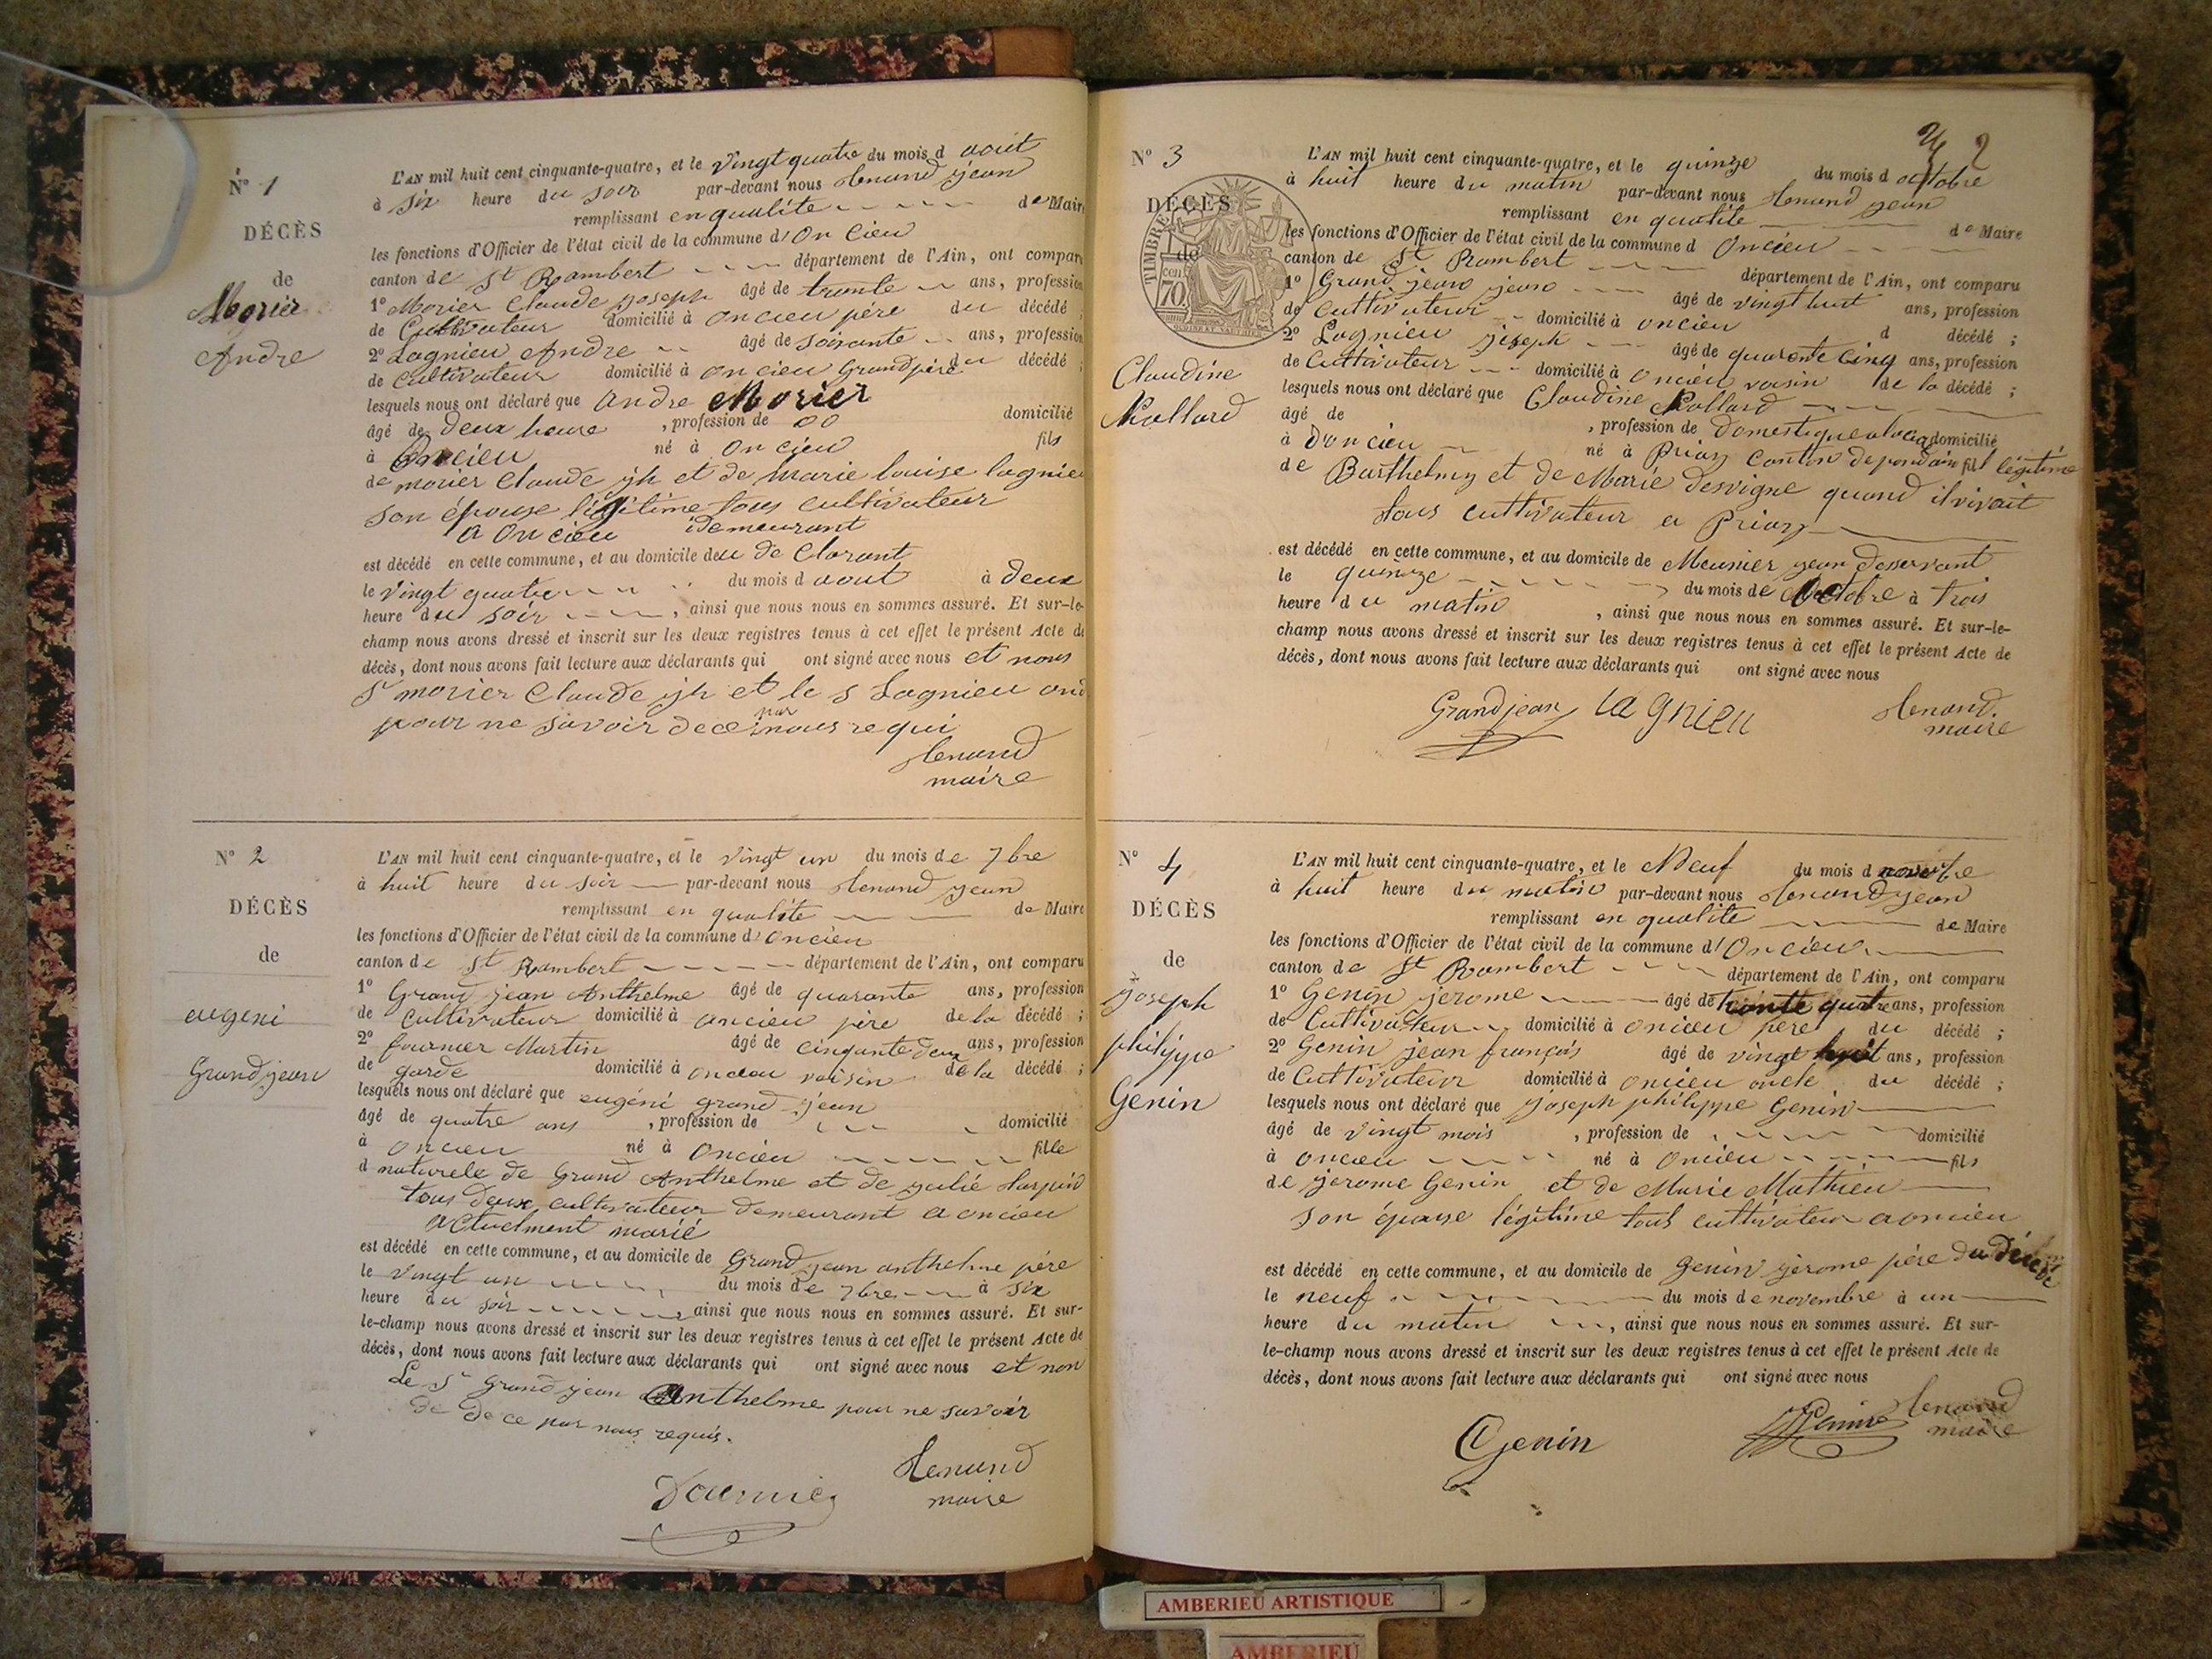 N° 1
DÉCÈS
de
Morier
Andre
L'AN mil huit cent cinquante-quatre, et le vingt quatre du mois d aout
à six heure du soir par-devant nous jean
remplissant en qualité de Maire
les fonctions d'Officier de l'état civil de la commune d'on cieu
canton de St Rambert département de l'Ain, ont comparu
1° Morier Claude joseph âgé de trante ans, profession
de Cultivateur domicilié à oncieu père du décédé ;
2° Lagnieu Andre âgé de soixante ans, profession
de cultivateur domicilié à on cieu Grand père du décédé ;
lesquels nous ont déclaré que andre Morier
âgé de deux heure , profession de 00 domicilié
à oncieu né à on cieu fils
de morier Claude jh et de marie louise lagnieu
son épouse légitime tous cultivateur
a on cieu demeurant
est décédé en cette commune, et au domicile deu de Clarant
le vingt quatre du mois d aout à deux
heure du soir , ainsi que nous nous en sommes assuré. Et sur-le-
champ nous avons dressé et inscrit sur les deux registres tenus à cet effet le présent Acte de
décès, dont nous avons fait lecture aux déclarants qui ont signé avec nous et nous
Sr morier Claude jh et le s Lagnieu and
pour ne savoir dece par nous requi
maire
N° 2
DÉCÈS
de
eugeni
Grandjean
L'AN mil huit cent cinquante-quatre, et le vingt un du mois de 7bre
à huit heure du soir par-devant nous jean
remplissant en qualité de Maire
les fonctions d'Officier de l'état civil de la commune d'oncieu
canton de St Rambert département de l'Ain, ont comparu
1° Grand jean Anthelme âgé de quarante ans, profession
de cultivateur domicilié à oncieu père de la décédé ;
2° fournier Martin âgé de cinquante deux ans, profession
de garde domicilié à oncieu voisin de la décédé ;
lesquels nous ont déclaré que eugéni grand jean
âgé de quatre ans , profession de domicilié
à oncieu né à oncieu fille
d naturele de Grand Anthelme et de julié
tous deux cultivateur demeurant a oncieu
actuelment marié
est décédé en cette commune, et au domicile de Grand jean anthelme père
le vingt un du mois de 7bre à six
heure du soir , ainsi que nous nous en sommes assuré. Et sur-
le-champ nous avons dressé et inscrit sur les deux registres tenus à cet effet le présent Acte de
décès, dont nous avons fait lecture aux déclarants qui ont signé avec nous et non
Le Sr Grand jean Anthelme pour ne savoir
de de ce par nous requis.
maire
N° 3
2
DÉCÈS
de
TIMBRE
cen
70
Claudine
L'AN mil huit cent cinquante-quatre, et le quinze du mois d octobre
à huit heure du matin par-devant nous jean
remplissant en qualité de Maire
les fonctions d'Officier de l'état civil de la commune d oncieu
canton de St Rambert département de l'Ain, ont comparu
1° Grand jean jean âgé de vingt huit ans, profession
de cultivateur domicilié à oncieu d décédé ;
2° Lagnieu joseph âgé de quarante cinq ans, profession
de Cultivateur domicilié à oncieu voisin de la décédé ;
lesquels nous ont déclaré que Claudine
âgé de , profession de domestique domicilié
à d'oncieu né à Priay Canton de pondain fil légitime
de Barthelmy et de Marie desvigne quand il vivait
tous cultivateur a Priay
est décédé en cette commune, et au domicile de Meunier jean desservant
le quinze du mois de Octobre à trois
heure du matin , ainsi que nous nous en sommes assuré. Et sur-le-
champ nous avons dressé et inscrit sur les deux registres tenus à cet effet le présent Acte de
décès, dont nous avons fait lecture aux déclarants qui ont signé avec nous
Grandjean lagnieu
maire
N° 4
DÉCÈS
de
joseph
philippe
Genin
L'AN mil huit cent cinquante-quatre, et le Neuf du mois d novebre
à huit heure du matin par-devant nous jean
remplissant en qualité de Maire
les fonctions d'Officier de l'état civil de la commune d'Oncieu
canton de St Rambert département de l'Ain, ont comparu
1° Genin jerome âgé de trente quatre ans, profession
de Cultivateur domicilié à oncieu père du décédé ;
2° Genin jean françois âgé de vingt huit ans, profession
de Cultivateur domicilié à oncieu oncle du décédé ;
lesquels nous ont déclaré que joseph philippe Genin
âgé de vingt mois , profession de domicilié
à oncieu né à oncieu fils
de jerome Genin et de Marie Mathieu
son épouse légitime tous cultivateur a oncieu
est décédé en cette commune, et au domicile de Genin jerome père du décédé
le neuf du mois de novembre à un
heure du matin , ainsi que nous nous en sommes assuré. Et sur-
le-champ nous avons dressé et inscrit sur les deux registres tenus à cet effet le présent Acte de
décès, dont nous avons fait lecture aux déclarants qui ont signé avec nous
Genin
maire
AMBERIEU ARTISTIQUE
AMBERIEU